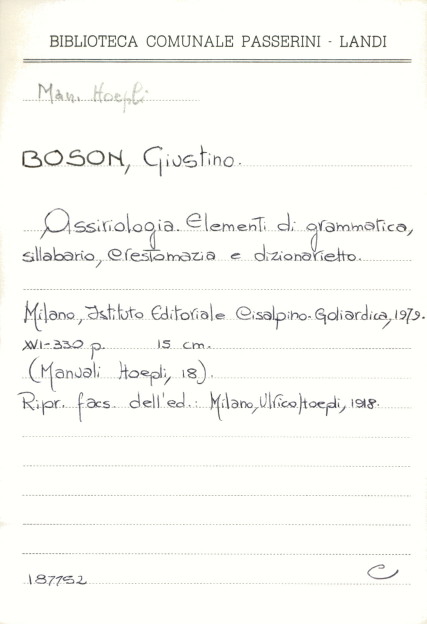 BIBLIOTECA COMUNALE PASSERINI - LANDI
Man. Hoepli
BOSON, Giustino.
Assiriologia. Elementi di grammatica,
sillabario, crestomazia e dizionarietto.
Milano, Istituto Editoriale Cisalpino-Goliardica, 1979.
XVI-330 p. 15 cm.
(Manuali Hoepli, 18).
Ripr. facs. dell'ed.: Milano, Ulrico Hoepli, 1918.
187752 C